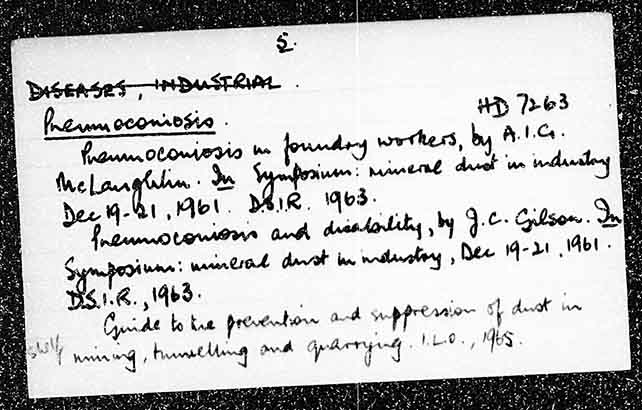 5.
DISEASES, INDUSTRIAL
HD 7263
Pneumoconiosis.
Pneumoconiosis in foundry workers, by A.I.G.
McLaughlin. In Symposium: mineral dust in industry
Dec 19-21, 1961. D.S.I.R. 1963.
Pneumoconiosis and disability, by J.C. Gilson. In
Symposium: mineral dust in industry, Dec 19-21, 1961.
D.S.I.R., 1963.
Guide to the prevention and suppression of dust in
shelf mining, tunnelling and quarrying. I.L.O., 1965.